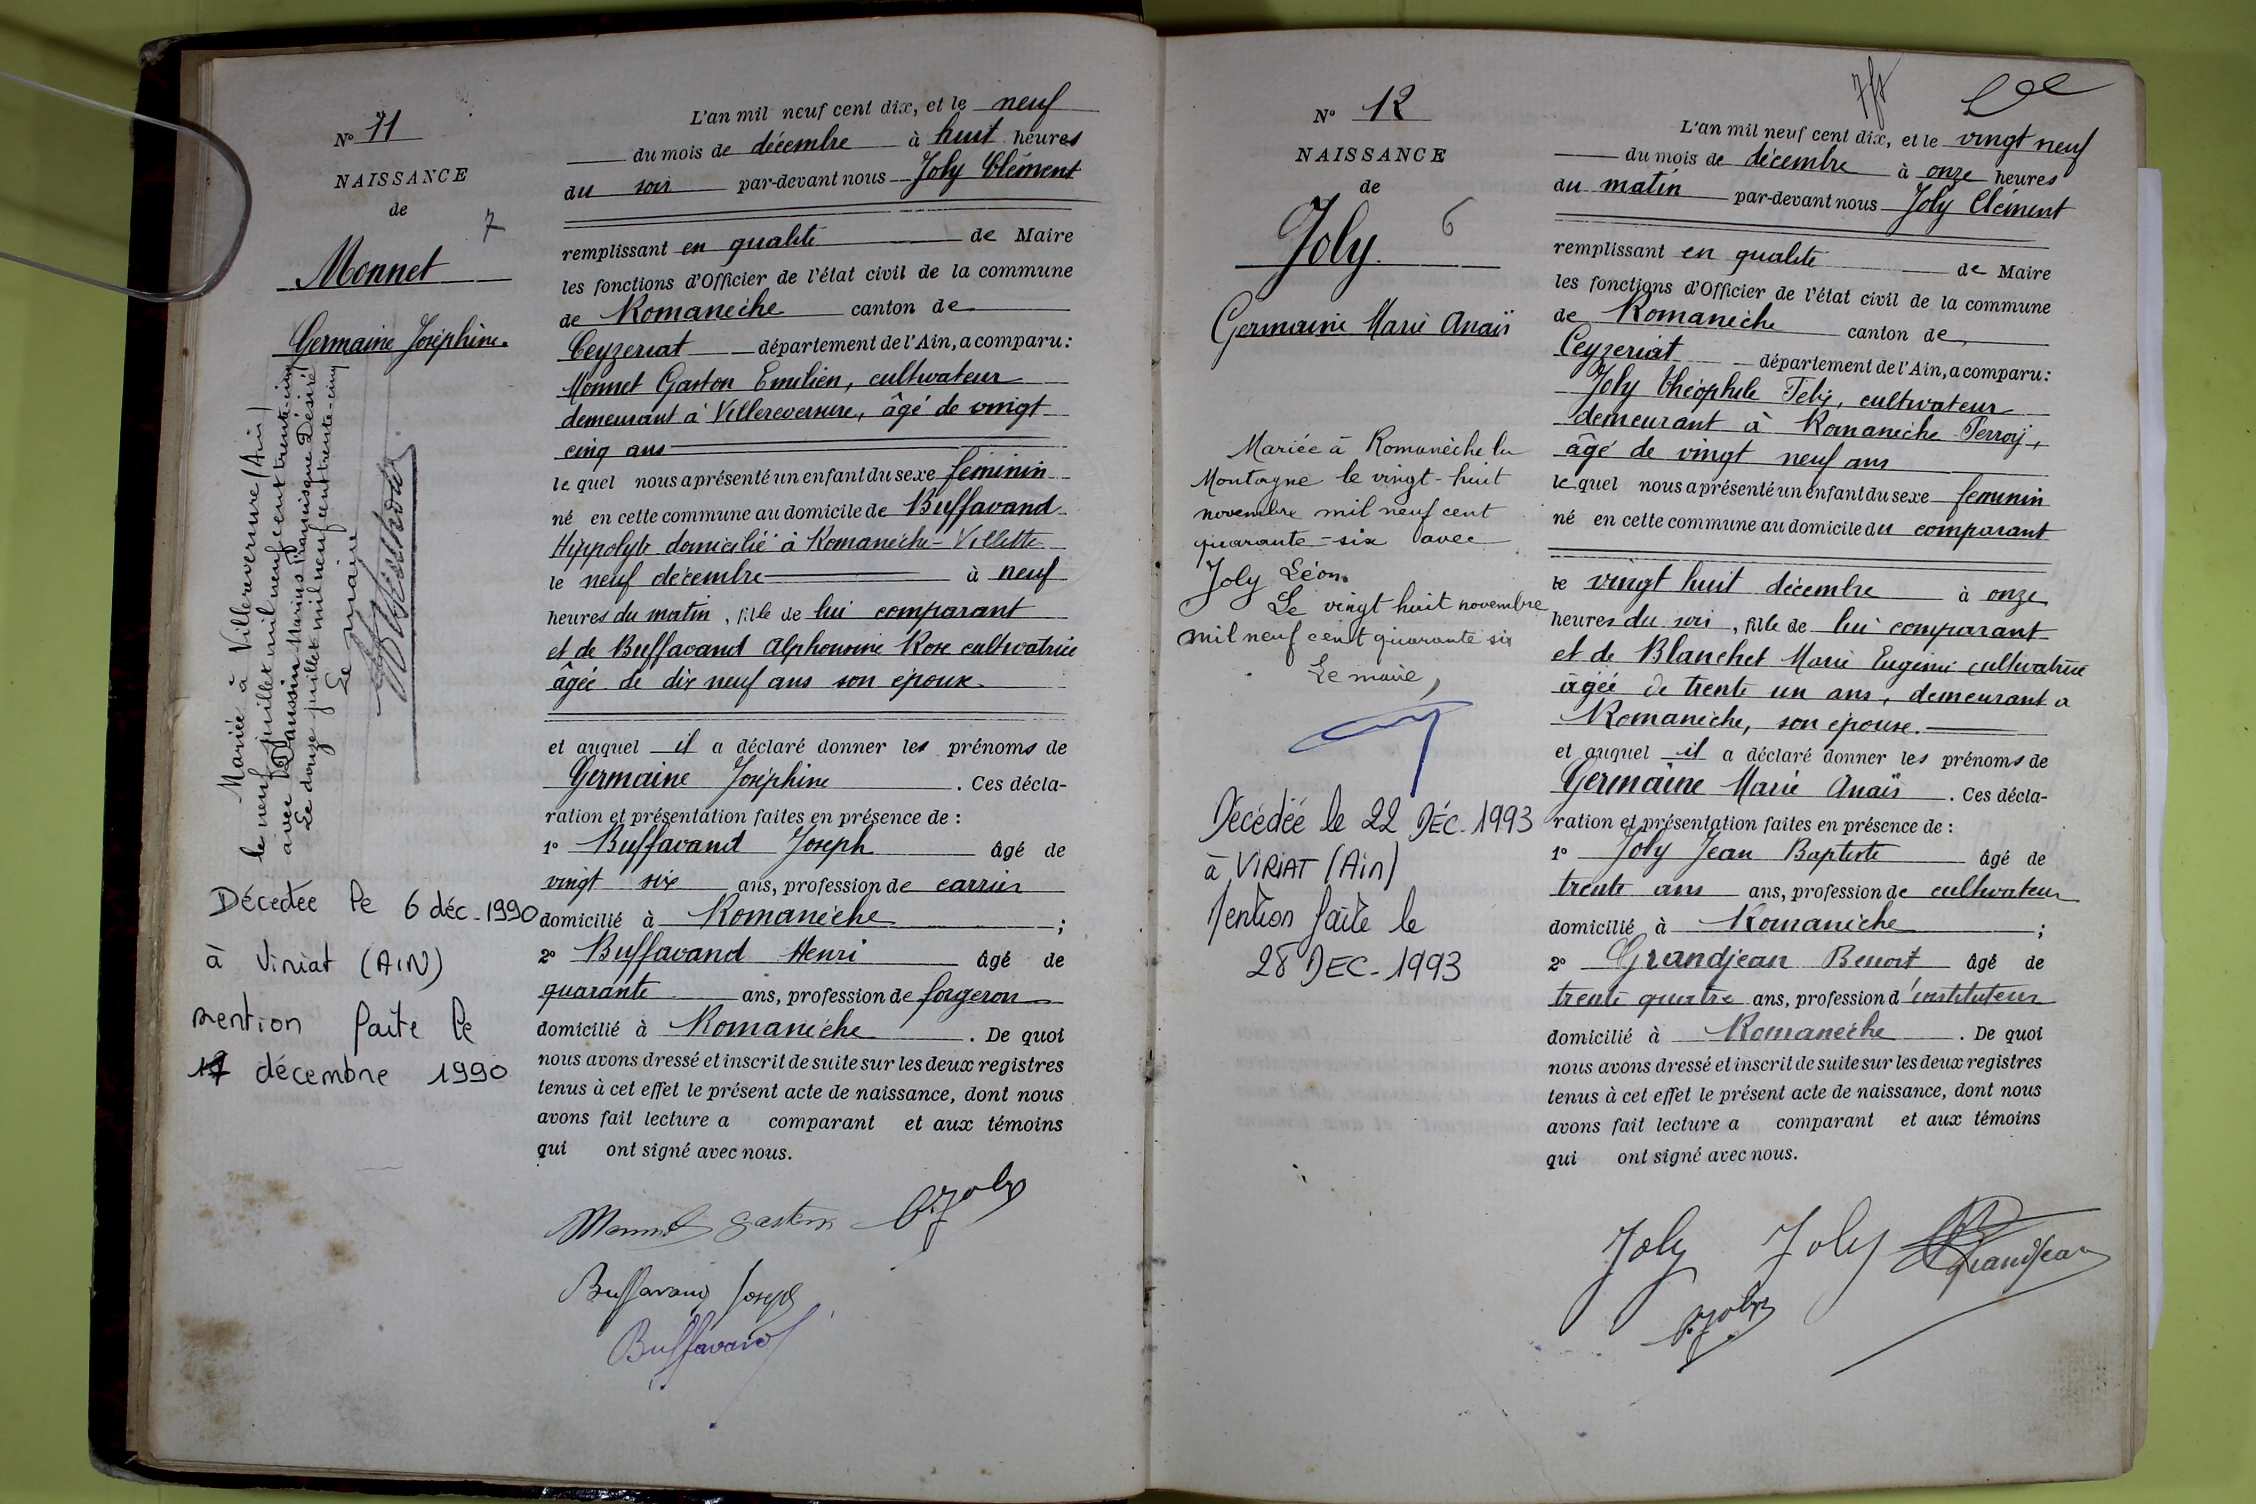 N° 11
NAISSANCE
de
7
Monnet
Germaine Joséphine.
Mariée à Villereversure (Ain)
le neuf juillet mil neuf cent trente-cinq
avec Marius Françisque Désiré
Le douze juillet mil neuf cent trente-cinq
Le maire
Décédée le 6 déc. 1990
à Viriat (AIN)
mention faite le
décembre 1990
L'an mil neuf cent dix, et le neuf
du mois de décembre à huit heures
du soir par-devant nous Joly Clément
remplissant en qualité de Maire
les fonctions d'Officier de l'état civil de la commune
de Romanèche canton de
Ceyzeriat département de l'Ain, a comparu:
Monnet Gaston Emilien, cultivateur
demeurant à Villereversure, âgé de vingt
cinq ans
le quel nous a présenté un enfant du sexe féminin
né en cette commune au domicile de Buffavand
Hippolyte domicilié à Romanèche-Villette
le neuf décembre à neuf
heures du matin, fille de lui comparant
et de Buffavand Alphonsine Rose cultivatrice
âgée de dix neuf ans son epoux
et auquel il a déclaré donner les prénoms de
Germaine Joséphine . Ces décla-
ration et présentation faites en présence de :
1° Buffavand Joseph âgé de
vingt six ans, profession de carrier
domicilié à Romanèche ;
2° Buffavand Henri âgé de
quarante ans, profession de forgeron
domicilié à Romanèche . De quoi
nous avons dressé et inscrit de suite sur les deux registres
tenus à cet effet le présent acte de naissance, dont nous
avons fait lecture a comparant et aux témoins
qui ont signé avec nous.
Monnet Gaston C. Joly
Buffavand Joseph
Buffavand
N° 12
NAISSANCE
de
6
Joly.
Germaine Marie Anaïs
Mariée à Romanèche la
Montagne le vingt-huit
novembre mil neuf cent
quarante-six avec
Joly Léon.
Le vingt huit novembre
mil neuf cent quarante six
Le maire,
Décédée le 22 DÉC. 1993
à VIRIAT (Ain)
Mention faite le
28 DEC. 1993
L'an mil neuf cent dix, et le vingt neuf
du mois de décembre à onze heures
du matin par-devant nous Joly Clément
remplissant en qualité de Maire
les fonctions d'Officier de l'état civil de la commune
de Romanèche canton de
Ceyzeriat département de l'Ain, a comparu:
Joly Théophile Felix, cultivateur
demeurant à Romanèche Perroy,
âgé de vingt neuf ans
le quel nous a présenté un enfant du sexe feminin
né en cette commune au domicile du comparant
le vingt huit décembre à onze
heures du soir, fille de lui comparant
et de Blanchet Marie Eugénie cultivatrice
âgée de trente un ans, demeurant a
Romanèche, son épouse.
et auquel il a déclaré donner les prénoms de
Germaine Marie Anaïs . Ces décla-
ration et présentation faites en présence de :
1° Joly Jean Baptiste âgé de
trente ans ans, profession de cultivateur
domicilié à Romanèche ;
2° Grandjean Benoit âgé de
trente quatre ans, profession d'instituteur
domicilié à Romanèche . De quoi
nous avons dressé et inscrit de suite sur les deux registres
tenus à cet effet le présent acte de naissance, dont nous
avons fait lecture a comparant et aux témoins
qui ont signé avec nous.
Joly Joly Grandjean
C. Joly